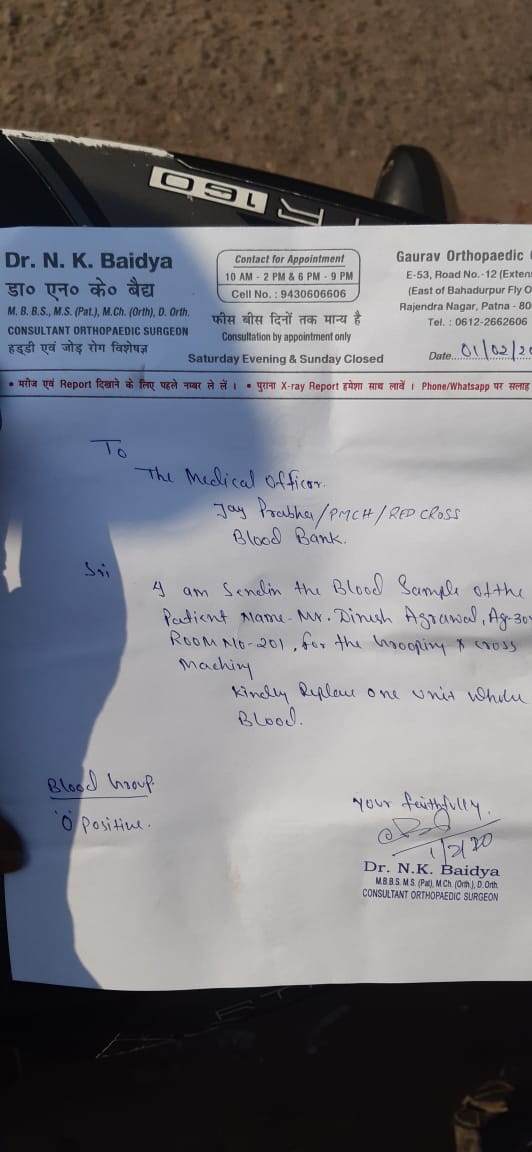 160
Dr. N. K. Baidya
डा० एन० के० बैद्य
M. B. B. S., M.S. (Pat.), M.Ch. (Orth), D. Orth.
CONSULTANT ORTHOPAEDIC SURGEON
हड्डी एवं जोड़ रोग विशेषज्ञ
Contact for Appointment
10 AM - 2 PM & 6 PM - 9 PM
Cell No. : 9430606606
फीस बीस दिनों तक मान्य है
Consultation by appointment only
Saturday Evening & Sunday Closed
Gaurav Orthopaedic
E-53, Road No.-12 (Exten
(East of Bahadurpur Fly O
Rajendra Nagar, Patna - 80
Tel. : 0612-2662606
Date....01/02/20
• मरीज एवं Report दिखाने के लिए पहले नम्बर ले लें । • पुराना X-ray Report हमेशा साथ लावें । Phone/Whatsapp पर सलाह
To
The Medical Officer.
Jay Prabha/PMCH/RED CROSS
Blood Bank.
Sri
I am Sendin the Blood Sample of the
Patient Name- Mr. Dinesh Agrawal, Ag-30
ROOM No-201, for the Grooping & cross
Maching
Kindly Replace one unit whole
Blood.
Blood Group
'O' Positive.
Your faithfully.
1/2/20
Dr. N.K. Baidya
M.B.B.S. M.S. (Pat), M.Ch. (Orth.), D. Orth.
CONSULTANT ORTHOPAEDIC SURGEON